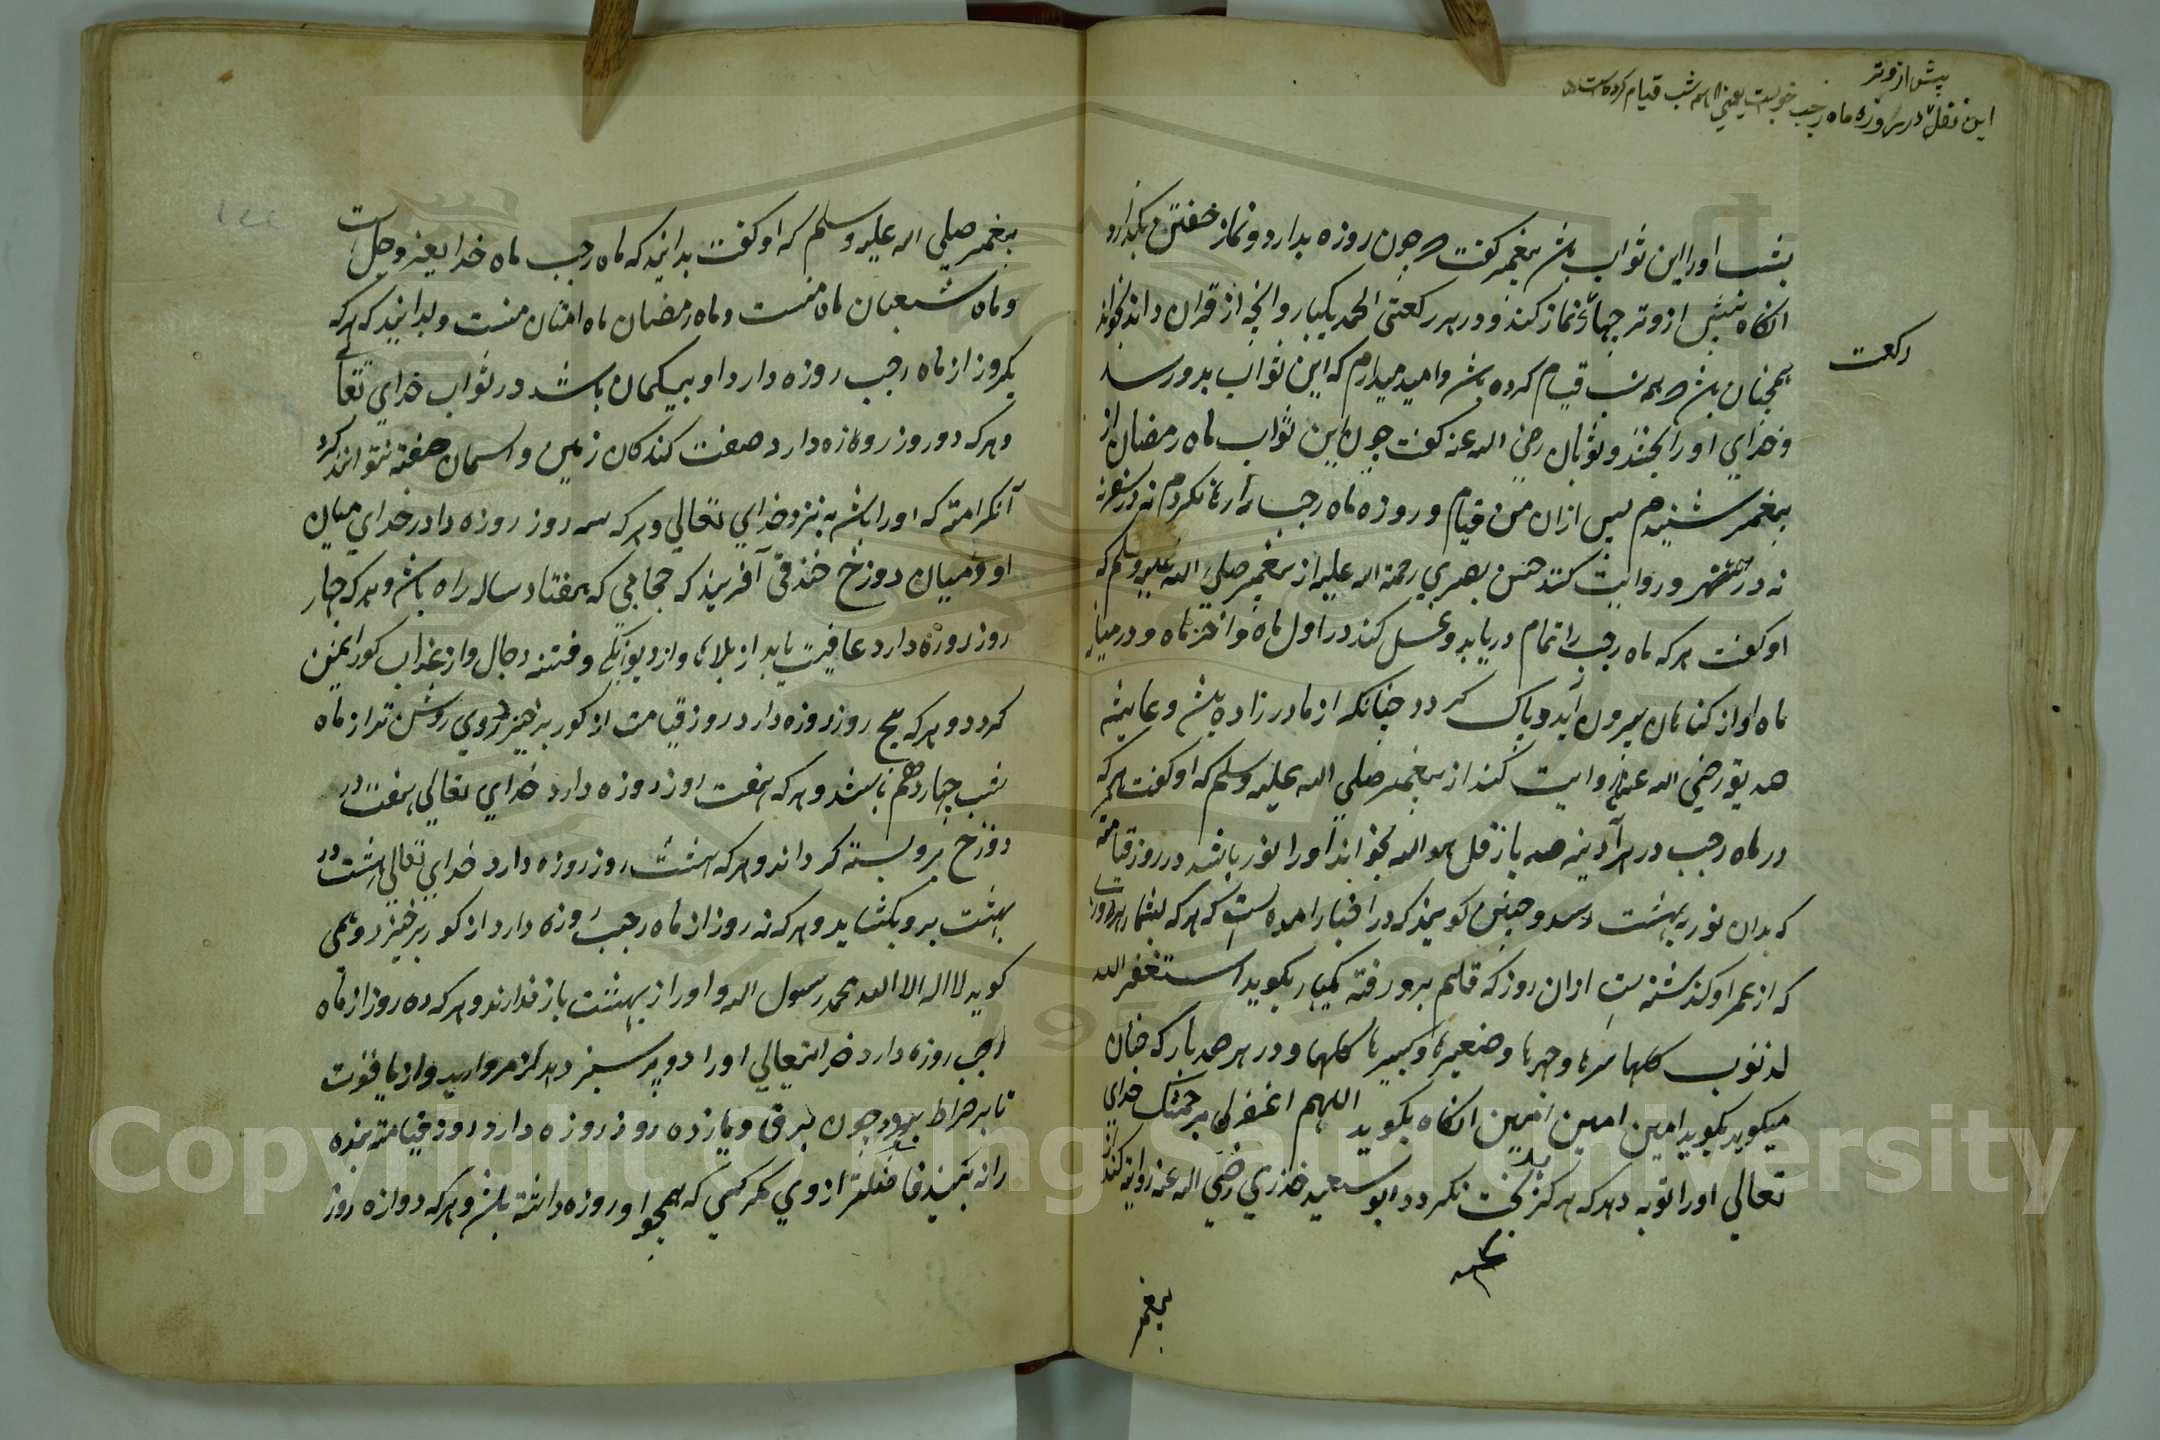 پیش از وتر
این نقل در روزه ماه رجب خوبست یعنی همه شب قیام کرده است
بشب اورا این ثواب باشد پیغمبر کفت چون روزه بدارد و نماز خفتن بکذارد
انکاه پیش از وتر چهار نماز کند و در هر رکعتی الحمد یکبار و انچه از قران داند بخواند
رکعت
همچنان باشد همه شب قیام کرده باشد و امید میدارم که این ثواب بدو رسد
و خدای اورا بخشد و ثوبان رضی الله عنه کفت چون این ثواب ماه رمضان از
پیغمبر شنیدم پس ازان من قیام و روزه ماه رجب را رها نکردم نه در سفر
نه در حضر و روایت کند حسن بصری رحمة الله علیه از پیغمبر صلی الله علیه وسلم که
او کفت هرکه ماه رجب را تمام دریابد و غسل کند در اول ماه و آخر ماه و در میان
ماه او از کناهان بیرون آید و پاک کردد چنانکه از مادر زاده باشد و عایشه
صدیقه رضی الله عنها روایت کند از پیغمبر صلی الله علیه وسلم که او کفت هرکه
در ماه رجب در هر آدینه صد بار قل هو الله بخواند اورا نور باشد در روز قیامت
که بدان نور به بهشت رسد و چنین کویند که در اخبار امده است که هرکه بشمار هر روز
که از عمر او کذشته است ازان روز که قلم برو رفته یکبار بکوید استغفر الله
لذنوب کلها سرها و جهرها و صغیرها و کبیرها کلها و در هر صد بار که چنان
میکوید بکوید امین امین امین انکاه بکوید اللهم اغفر لی برحمتک خدای
تعالی اورا توبه دهد که هرکز بدبخت نکردد ابو سعید خدری رضی الله عنه روایت کند از
پیغمبر
پیغمبر صلی الله علیه وسلم که او کفت بدانید که ماه رجب ماه خدای عز و جل است
و ماه شعبان ماه منست و ماه رمضان ماه امتان منست و بدانید که هرکه
یکروز از ماه رجب روزه دارد او بیکمان باشد در ثواب خدای تعالی
و هرکه دو روز روزه دارد صفت کنندکان زمین و اسمان صفت نتوانند کرد
آن کرامت که اورا باشد به نزد خدای تعالی و هرکه سه روز روزه دارد خدای میان
او و میان دوزخ خندقی آفریند که حجابی که هفتاد ساله راه باشد و هرکه چهار
روز روزه دارد عافیت یابد از بلاها و از دیوانکی و فتنه دجال و از عذاب کور ایمن
کردد و هرکه پنج روز روزه دارد روز قیامت از کور برخیزد روی روشن تر از ماه
شب چهاردهم باشد و هرکه هفت روز روزه دارد خدای تعالی هفت در
دوزخ برو بسته کرداند و هرکه هشت روز روزه دارد خدای تعالی هشت در
بهشت برو بکشاید و هرکه نه روز از ماه رجب روزه دارد از کور برخیزد و همی
کوید لا اله الا الله محمد رسول الله و اورا از بهشت باز ندارند و هرکه ده روز از ماه
رجب روزه دارد خدایتعالی اورا دو پر سبز دهد از مروارید و از یاقوت
تا بر صراط برود چون برق و یازده روز روزه دارد روز قیامت بنده
را نه بینند فاضلتر از وی مکر کسی که همچو او روزه داشته باشد و هرکه دوازده روز